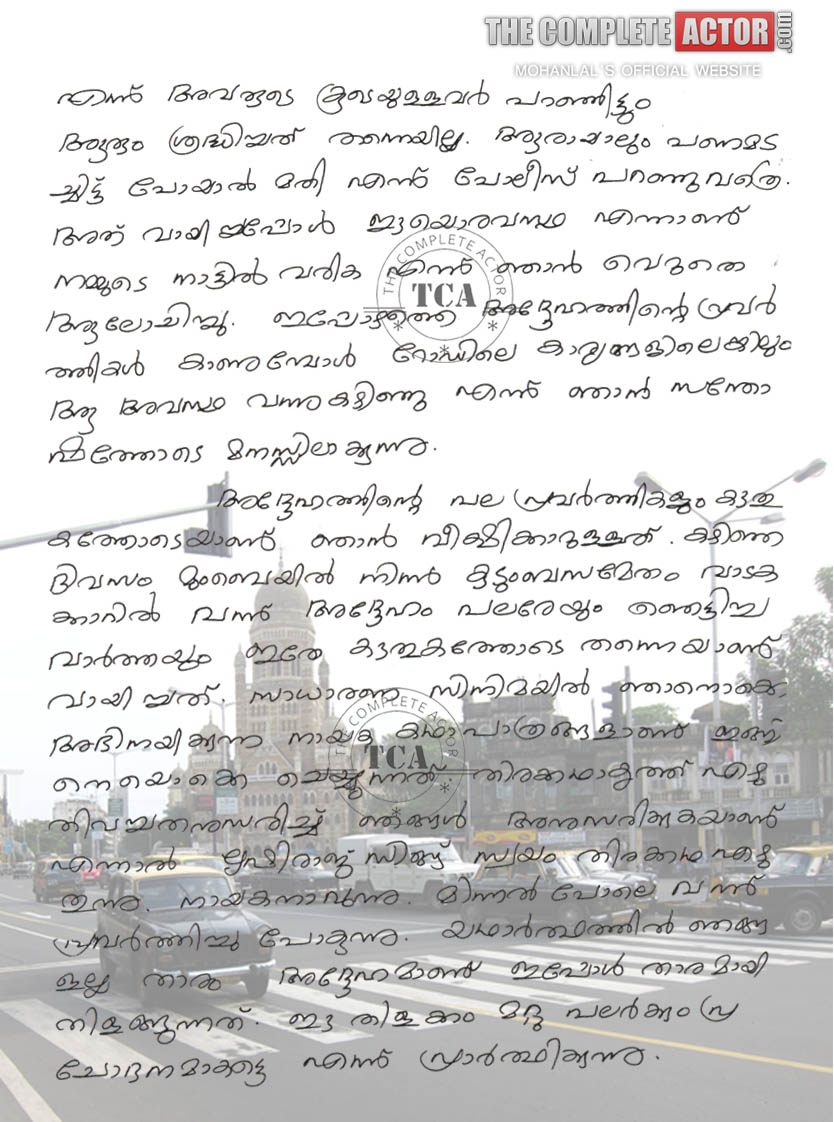 THE COMPLETE ACTOR.com
MOHANLAL'S OFFICIAL WEBSITE
എന്ന് അവരുടെ കൂടെയുള്ളവർ പറഞ്ഞിട്ടും
ആരും ശ്രദ്ധിച്ചത് തന്നെയില്ല. ആരായാലും പണമട
ച്ചിട്ട് പോയാൽ മതി എന്ന് പോലീസ് പറഞ്ഞുവത്രെ.
അത് വായിച്ചപ്പോൾ ഈയൊരവസ്ഥ എന്നാണ്
നമ്മുടെ നാട്ടിൽ വരിക എന്ന് ഞാൻ വെറുതെ
ആലോചിച്ചു. ഇപ്പോഴത്തെ അദ്ദേഹത്തിന്റെ പ്രവർ
ത്തികൾ കാണുമ്പോൾ റോഡിലെ കാര്യങ്ങളിലെങ്കിലും
ആ അവസ്ഥ വന്നുകഴിഞ്ഞു എന്ന് ഞാൻ സന്തോ
ഷത്തോടെ മനസ്സിലാക്കുന്നു.
അദ്ദേഹത്തിന്റെ പല പ്രവർത്തികളും കൗതു
കത്തോടെയാണ് ഞാൻ വീക്ഷിക്കാറുള്ളത്. കഴിഞ്ഞ
ദിവസം മുംബൈയിൽ നിന്ന് കുടുംബസമേതം വാടക
ക്കാറിൽ വന്ന് അദ്ദേഹം പലരേയും ഞെട്ടിച്ച
വാർത്തയും ഇതേ കൗതുകത്തോടെ തന്നെയാണ്
വായിച്ചത്. സാധാരണ സിനിമയിൽ ഞാനൊക്കെ
അഭിനയിക്കുന്ന നായക കഥാപാത്രങ്ങളാണ് ഇങ്ങ
നെയൊക്കെ ചെയ്യുന്നത്. തിരക്കഥാകൃത്ത് എഴു
തിവച്ചതനുസരിച്ച് ഞങ്ങൾ അനുസരിക്കുകയാണ്
എന്നാൽ ഋഷിരാജ് സിങ്ങ് സ്വയം തിരക്കഥ എഴു
തുന്നു. നായകനാവുന്നു. മിന്നൽ പോലെ വന്ന്
പ്രവർത്തിച്ചു പോകുന്നു. യഥാർത്ഥത്തിൽ ഞങ്ങ
ളല്ല താരം അദ്ദേഹമാണ് ഇപ്പോൾ താരമായി
തിളങ്ങുന്നത്. ഈ തിളക്കം മറ്റു പലർക്കും പ്ര
ചോദനമാകട്ടെ എന്ന് പ്രാർത്ഥിക്കുന്നു.
THE COMPLETE ACTOR
TCA
THE COMPLETE ACTOR
TCA